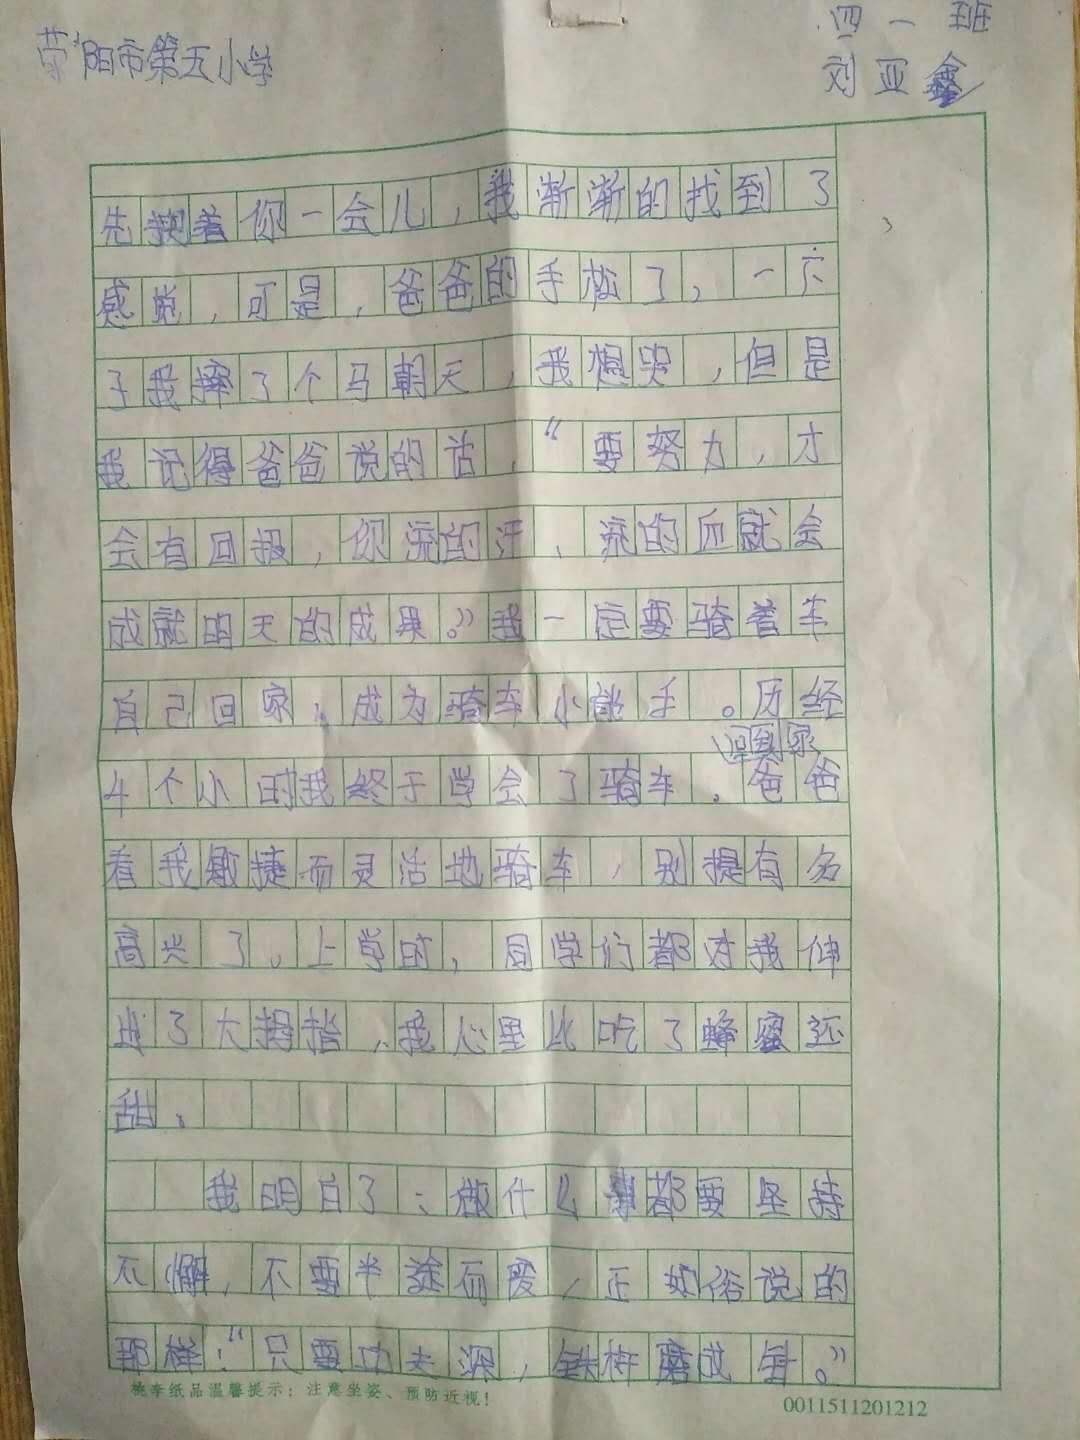 荥阳市第五小学
四一班
刘亚鑫
先扶着你一会儿，我渐渐的找到了
感觉，可是，爸爸的手松了，一下
子我摔了个马朝天，我想哭，但是
我记得爸爸说的话，“要努力，才
会有回报，你流的汗、流的血就会
成就明天的成果。”我一定要骑着车
自己回家，成为骑车小能手。历经
4个小时我终于学会了骑车。爸爸
回到家
看我敏捷而灵活地骑车，别提有多
高兴了。上学时，同学们都对我伸
出了大拇指，我心里比吃了蜂蜜还
甜。
我明白了：做什么事都要坚持
不懈，不要半途而废，正如俗说的
那样：“只要功夫深，铁杵磨成针。”
桃李纸品温馨提示：注意坐姿、预防近视！
0011511201212